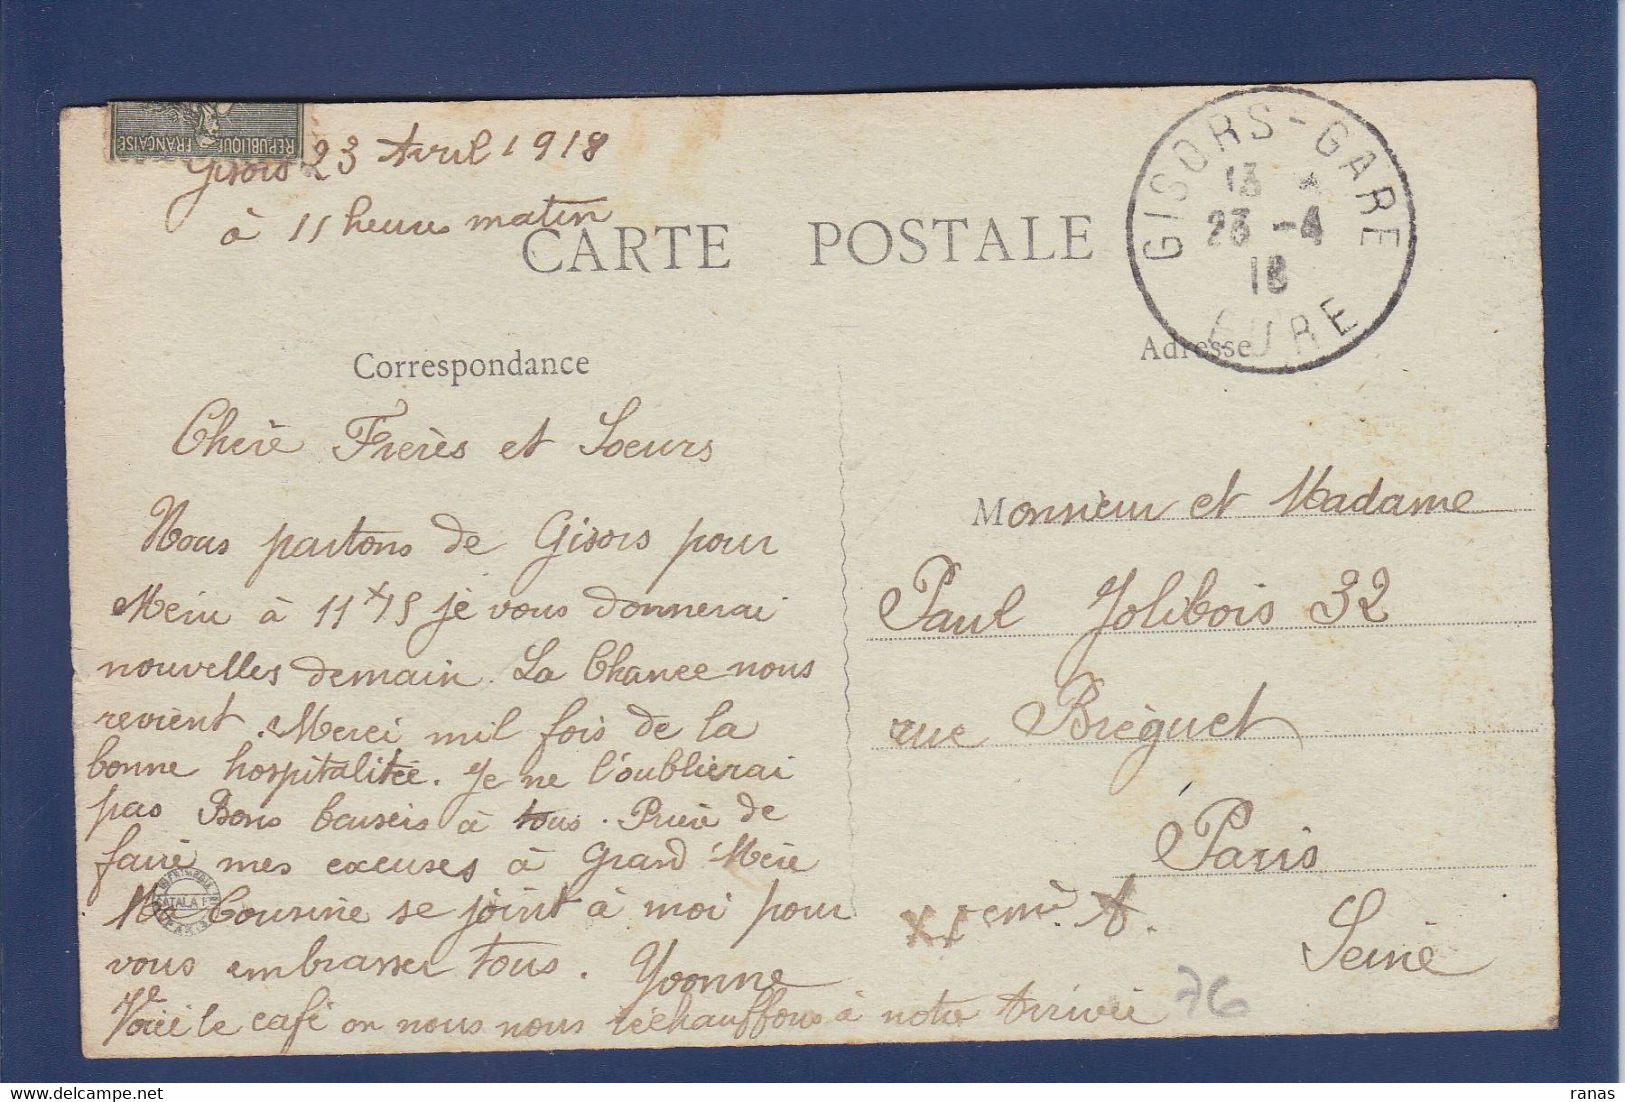 RÉPUBLIQUE FRANÇAISE
Gisors 23 Avril 1918
à 11 heures matin
CARTE POSTALE
GISORS-GARE
13
23 -4
18
EURE
Correspondance
Adresse
Chère Frères et Soeurs
Nous partons de Gisors pour
Meru à 11 x 15 je vous donnerai
nouvelles demain. La Chance nous
revient. Merci mil fois de la
bonne hospitalitée. Je ne l'oublierai
pas Bons baiseis à tous. Prière de
faire mes excuses à Grand'Mère
Ma Cousine se joint à moi pour
vous embrasser tous. Yvonne
Voici le café ou nous nous réchauffons à notre Arrivée
Monsieur et Madame
Paul Jolibois 32
rue Bréguet
Paris
XIeme A.
Seine
76
IMPRIMERIE
CATALA FR
PARIS
ranas